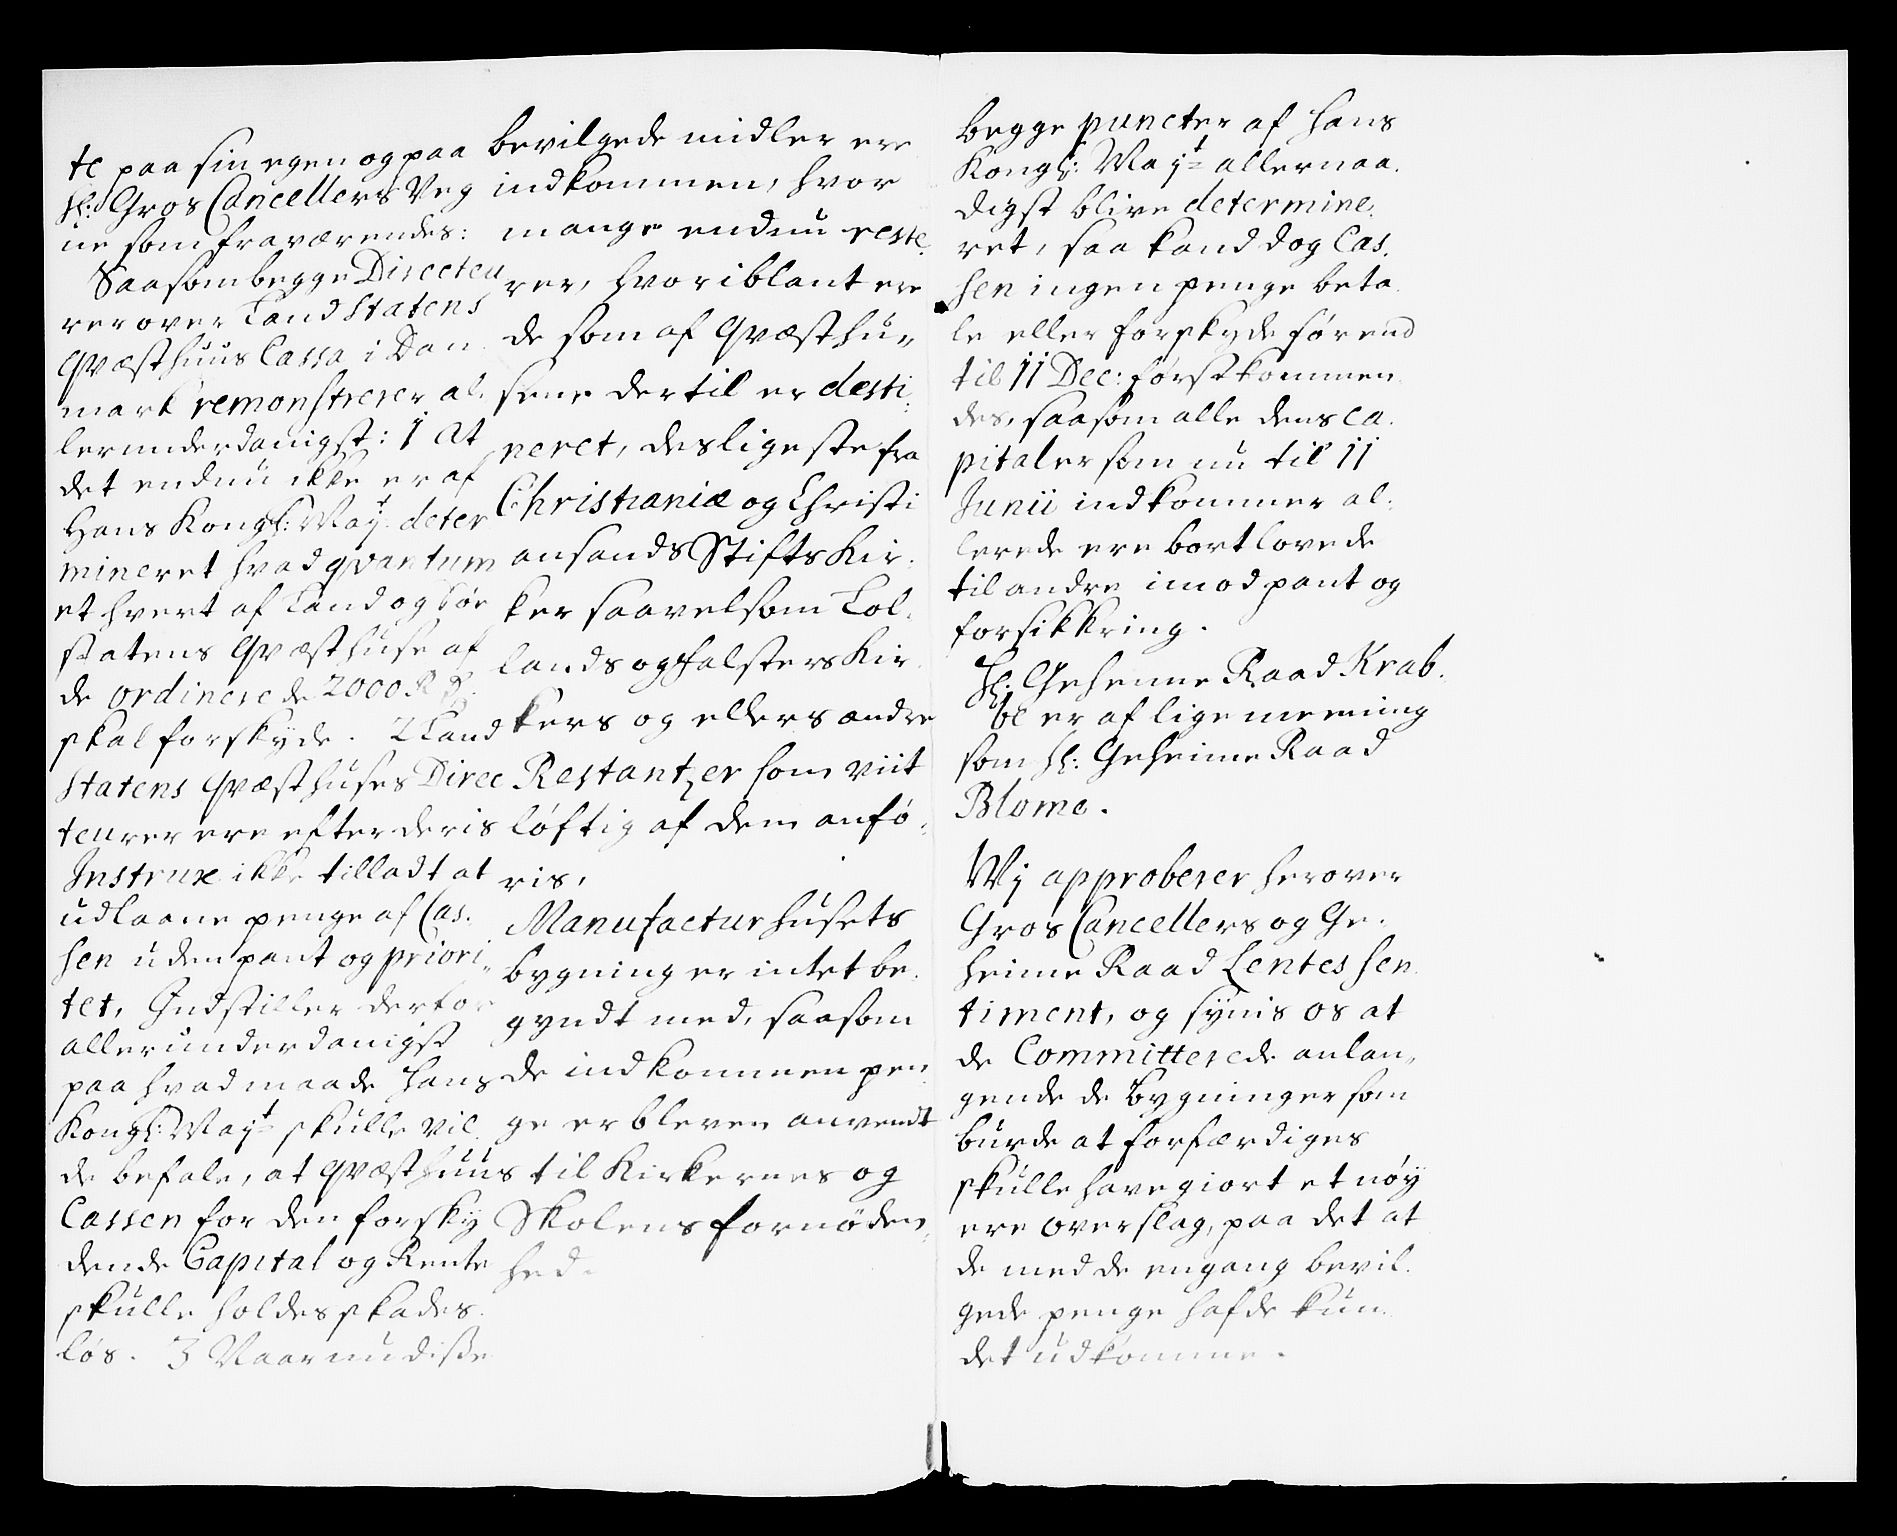 te paa sin egen og paa
Hl: Gros Cancellers Veg
ne som fraværendes:
Saasom begge Directeu
rer over Land Statens
Qvæsthuus Cassa i Dan
mark remonstrerer al
lerunderdanigst: 1 At
det endnu ikke er af
Hans Kongl: May:t deter
mineret hvad qvantum
et hvert af Land og Søe
statens Qvæsthuse af
de ordinerede 2000 Rd
skal forskyde. 2 Land
statens Qvæsthuses Direc
teurer ere efter deris
Instrux ikke tilladt at
udlaane penge af Cas.
sen uden pant og priori
tet, Indstiller derfor
allerunderdanigst
paa hvad maade Hans
Kongl: May:t skulle vil
de befale, at Qvæsthuus
Cassen for den forsky
dende Capital og Rente
skulle holdes skades.
løs. 3 Naar nu disse
bevilgede midler ere
indkommen, hvor
mange endnu reste.
rer, hvoriblant ere
de som af Qvæsthu,,
sene dertil er desti.
neret, desligeste fra
Christianiæ og Christi
ansands Stifts Kir.
ker saavelsom Lol.
lands og Falsters Kir
kers og ellers andre
Restantzer som viit
løftig af dem anfø.
ris,
Manufactur husets
bygning er intet be.
gyndt med, saasom
de indkommen pen
ge er bleven anvendt
til Kirkernes og
Skolens fornøden,
hed.
begge puncter af Hans
Kongl: May:t allernaa.
digst blive determine.
ret, saa kand dog Cas.
sen ingen penge beta
le eller forskyde før end
til 11 Dec: førstkommen
des, saasom alle dens ca.
pitaler som nu til 11
Junii indkommer al.
lerede ere bortlovede
til andre imod pant og
forsikkring.
Hl: Geheime Raad Krab.
be er af lige meening
som Hl: Geheime Raad
Blome.
Wj approberer herover
Gros Cancellers og Ge.
heime Raad Lentes sen.
timent, og synis os at
de Committerede anlan,,
gende de bygninger som
burde at forfærdiges
skulle have giort et nøy
ere overslag, paa det at
de med de engang bevil.
gede penge hafde kun
det udkomme.